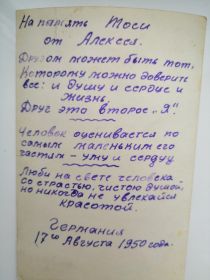 На память Тоси
от Алексея.
Другом может быть тот,
Которому можно доверить
все: и душу и сердце и
жизнь.
Друг это второе „Я".
Человек оценивается по
самым маленьким его
частям – уму и сердцу
Люби на свете человека
со страстью, чистою душой,
но никогда не увлекайся
красотой.
Германия
17го Августа 1950 года.